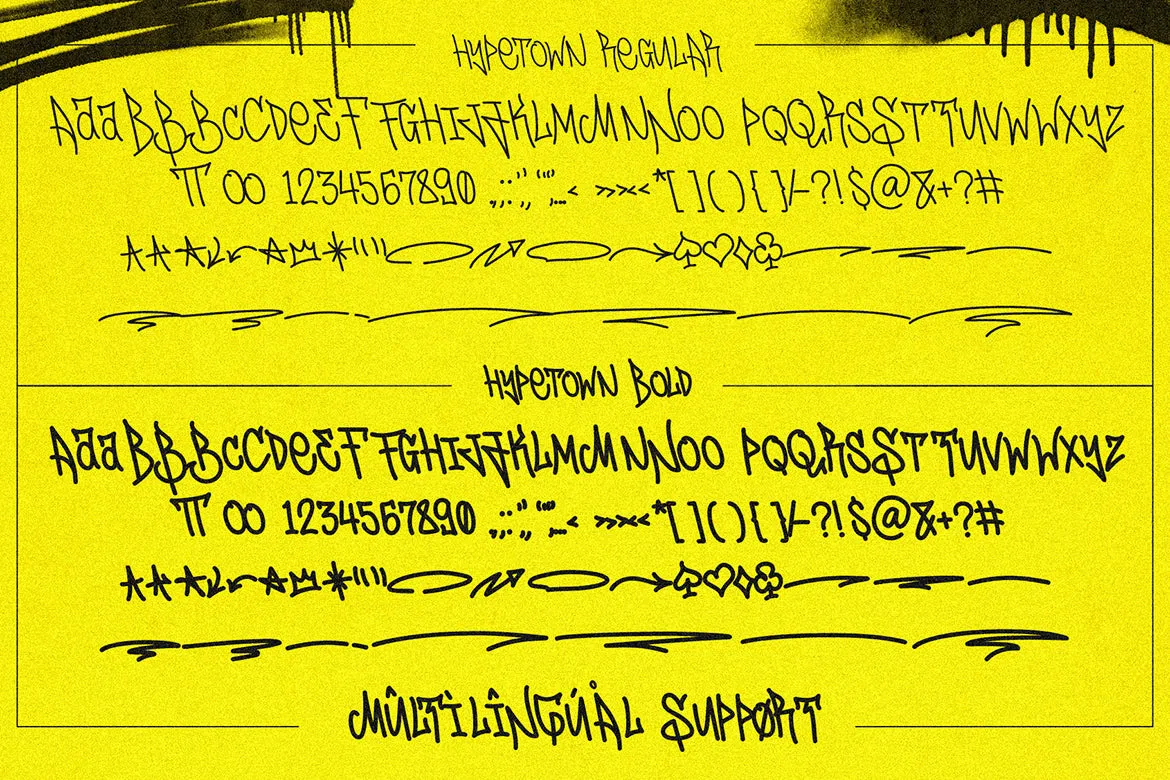 HYPETOWN REGULAR
AaaBBBCCDeEFFGHIJJKLMMNNOO PQQRSSTTUVWWXYZ
TT OO 1234567890 .,:;'' "",,…‹ »›‹«*[ ](){ }/-?!$@&+?#
HYPETOWN BOLD
AaaBBBCCDeEFFGHIJJKLMMNNOO PQQRSSTTUVWWXYZ
TT OO 1234567890 .,:;'' "",,…‹ »›‹«*[ ](){ }/-?!$@&+?#
MÛLTÌLÎNGÚÅL SUPPØRT